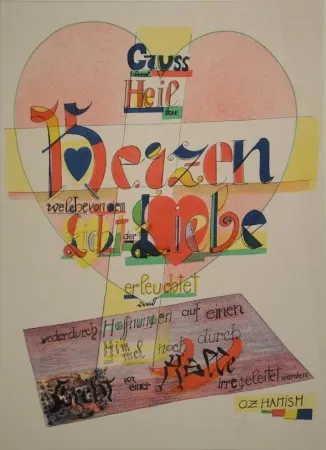 Gruss
und
Heil
den
Herzen
welche von dem
Licht- der Liebe
erleuchtet
und
weder durch Hoffnungen auf einen
Himmel noch durch
Furcht vor einer Hölle irregeleitet werden
OZ HANISH